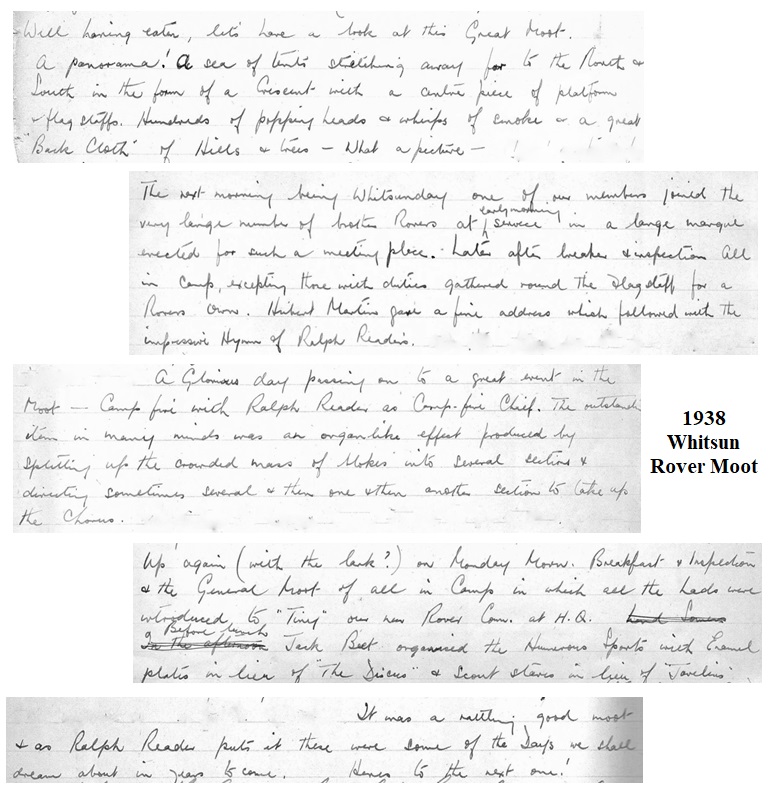 Will having eaten, let's have a look at this Great Moot.
A panorama! A sea of tents stretching away far to the North &
South in the form of a Crescent with a centre piece of platform
& flag staffs. Hundreds of popping heads & whisps of smoke & a great
"Back Cloth" of Hills & trees – What a picture –
The next morning being Whitsunday one of our members joined the
early morning
very large number of brother Rovers at service in a large marque
erected for such a meeting place. Later after breaker & inspection All
in Camp, excepting those with duties gathered round the Flagstaff for a
Rovers Own. Hubert Martin gave a fine address which followed with the
impressive Hymn of Ralph Readers.
A Glorious day passing on to a great event in the
Moot — Camp fire with Ralph Reader as Camp-fire Chief. The outstand
item in many minds was an organlike effect produced by
splitting up the crowded mass of blokes into several sections &
directing sometimes several & then one & then another section to take up
the Chorus.
1938
Whitsun
Rover Moot
Up again (with the lark?) on Monday Morn. Breakfast & Inspection
& the General Moot of all in Camp in which all the Lads were
introduced to "Tiny" our new Rover Com. at H.Q.
Before lunch
In the afternoon Jack Beet organised the Humerous Sports with Enamel
plates in lieu of "The Discus" & Scout staves in lieu of "Javelins"
It was a rattling good moot
& as Ralph Reader puts it there were some of the Days we shall
dream about in years to come. Heres to the next one!